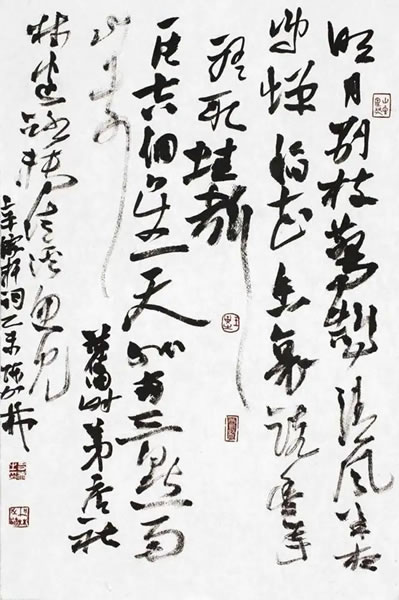 明月别枝驚鹊清风半夜
鸣蝉稻花香里说丰年
听取蛙声
一片七八個星天外两三點雨
山前
舊时茅店社
林边路转溪桥忽见
辛稼轩词乙未